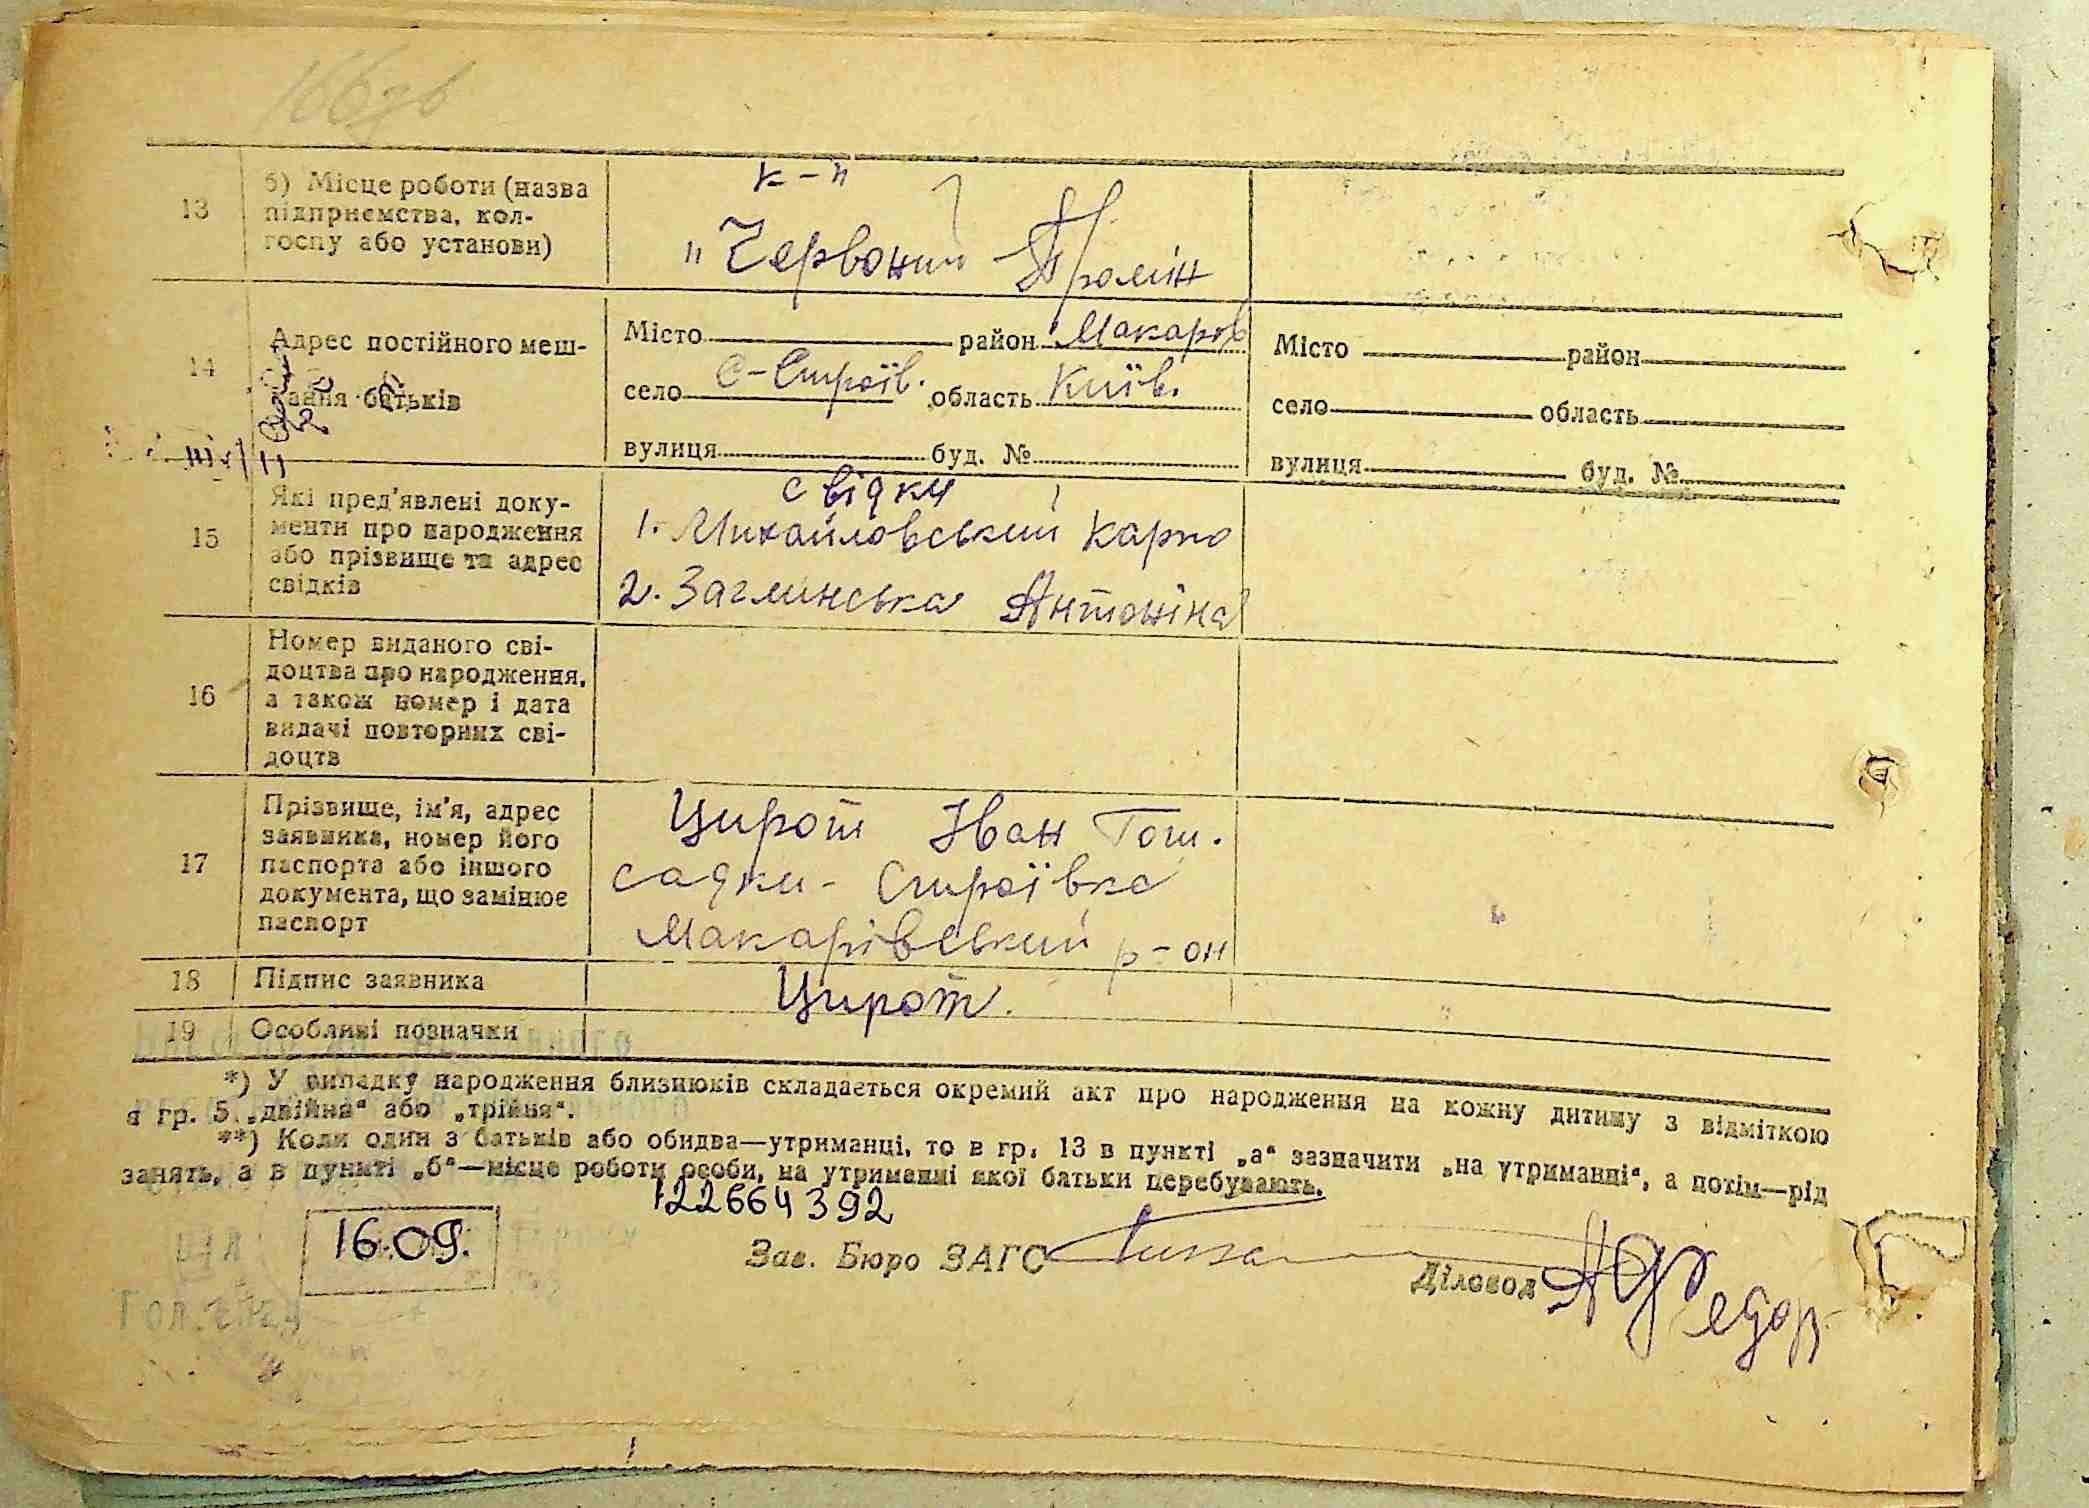 166зв
13
б) Місце роботи (назва
підприємства, кол-
госпу або установи)
к-п
"Червоний Промін
14
Адрес постійного меш-
кання батьків
Місто район Макарів
село С-Строїв. область Київ.
вулиця буд. №
Місто район
село область
вулиця буд. №
15
Які пред'явлені доку-
менти про народження
або прізвище та адрес
свідків
свідки
1. Михайловський Карпо
2. Заглинська Антоніна
16
Номер виданого сві-
доцтва про народження,
а також номер і дата
видачі повторних сві-
доцтв
17
Прізвище, ім'я, адрес
заявника, номер його
паспорта або іншого
документа, що замінює
паспорт
Цирот Іван
садки- Строївка
Макарівський р-он
18
Підпис заявника
Цирот.
19
Особливі позначки
*) У випадку народження близнюків складається окремий акт про народження на кожну дитину з відміткою
в гр. 5 „двійня“ або „трійня“.
**) Коли один з батьків або обидва—утриманці, то в гр. 13 в пункті „а“ зазначити „на утриманні“, а потім—рід
занять, а в пункті „б“—місце роботи особи, на утриманні якої батьки перебувають.
122664392
16.09.
Зав. Бюро ЗАГС
Діловод